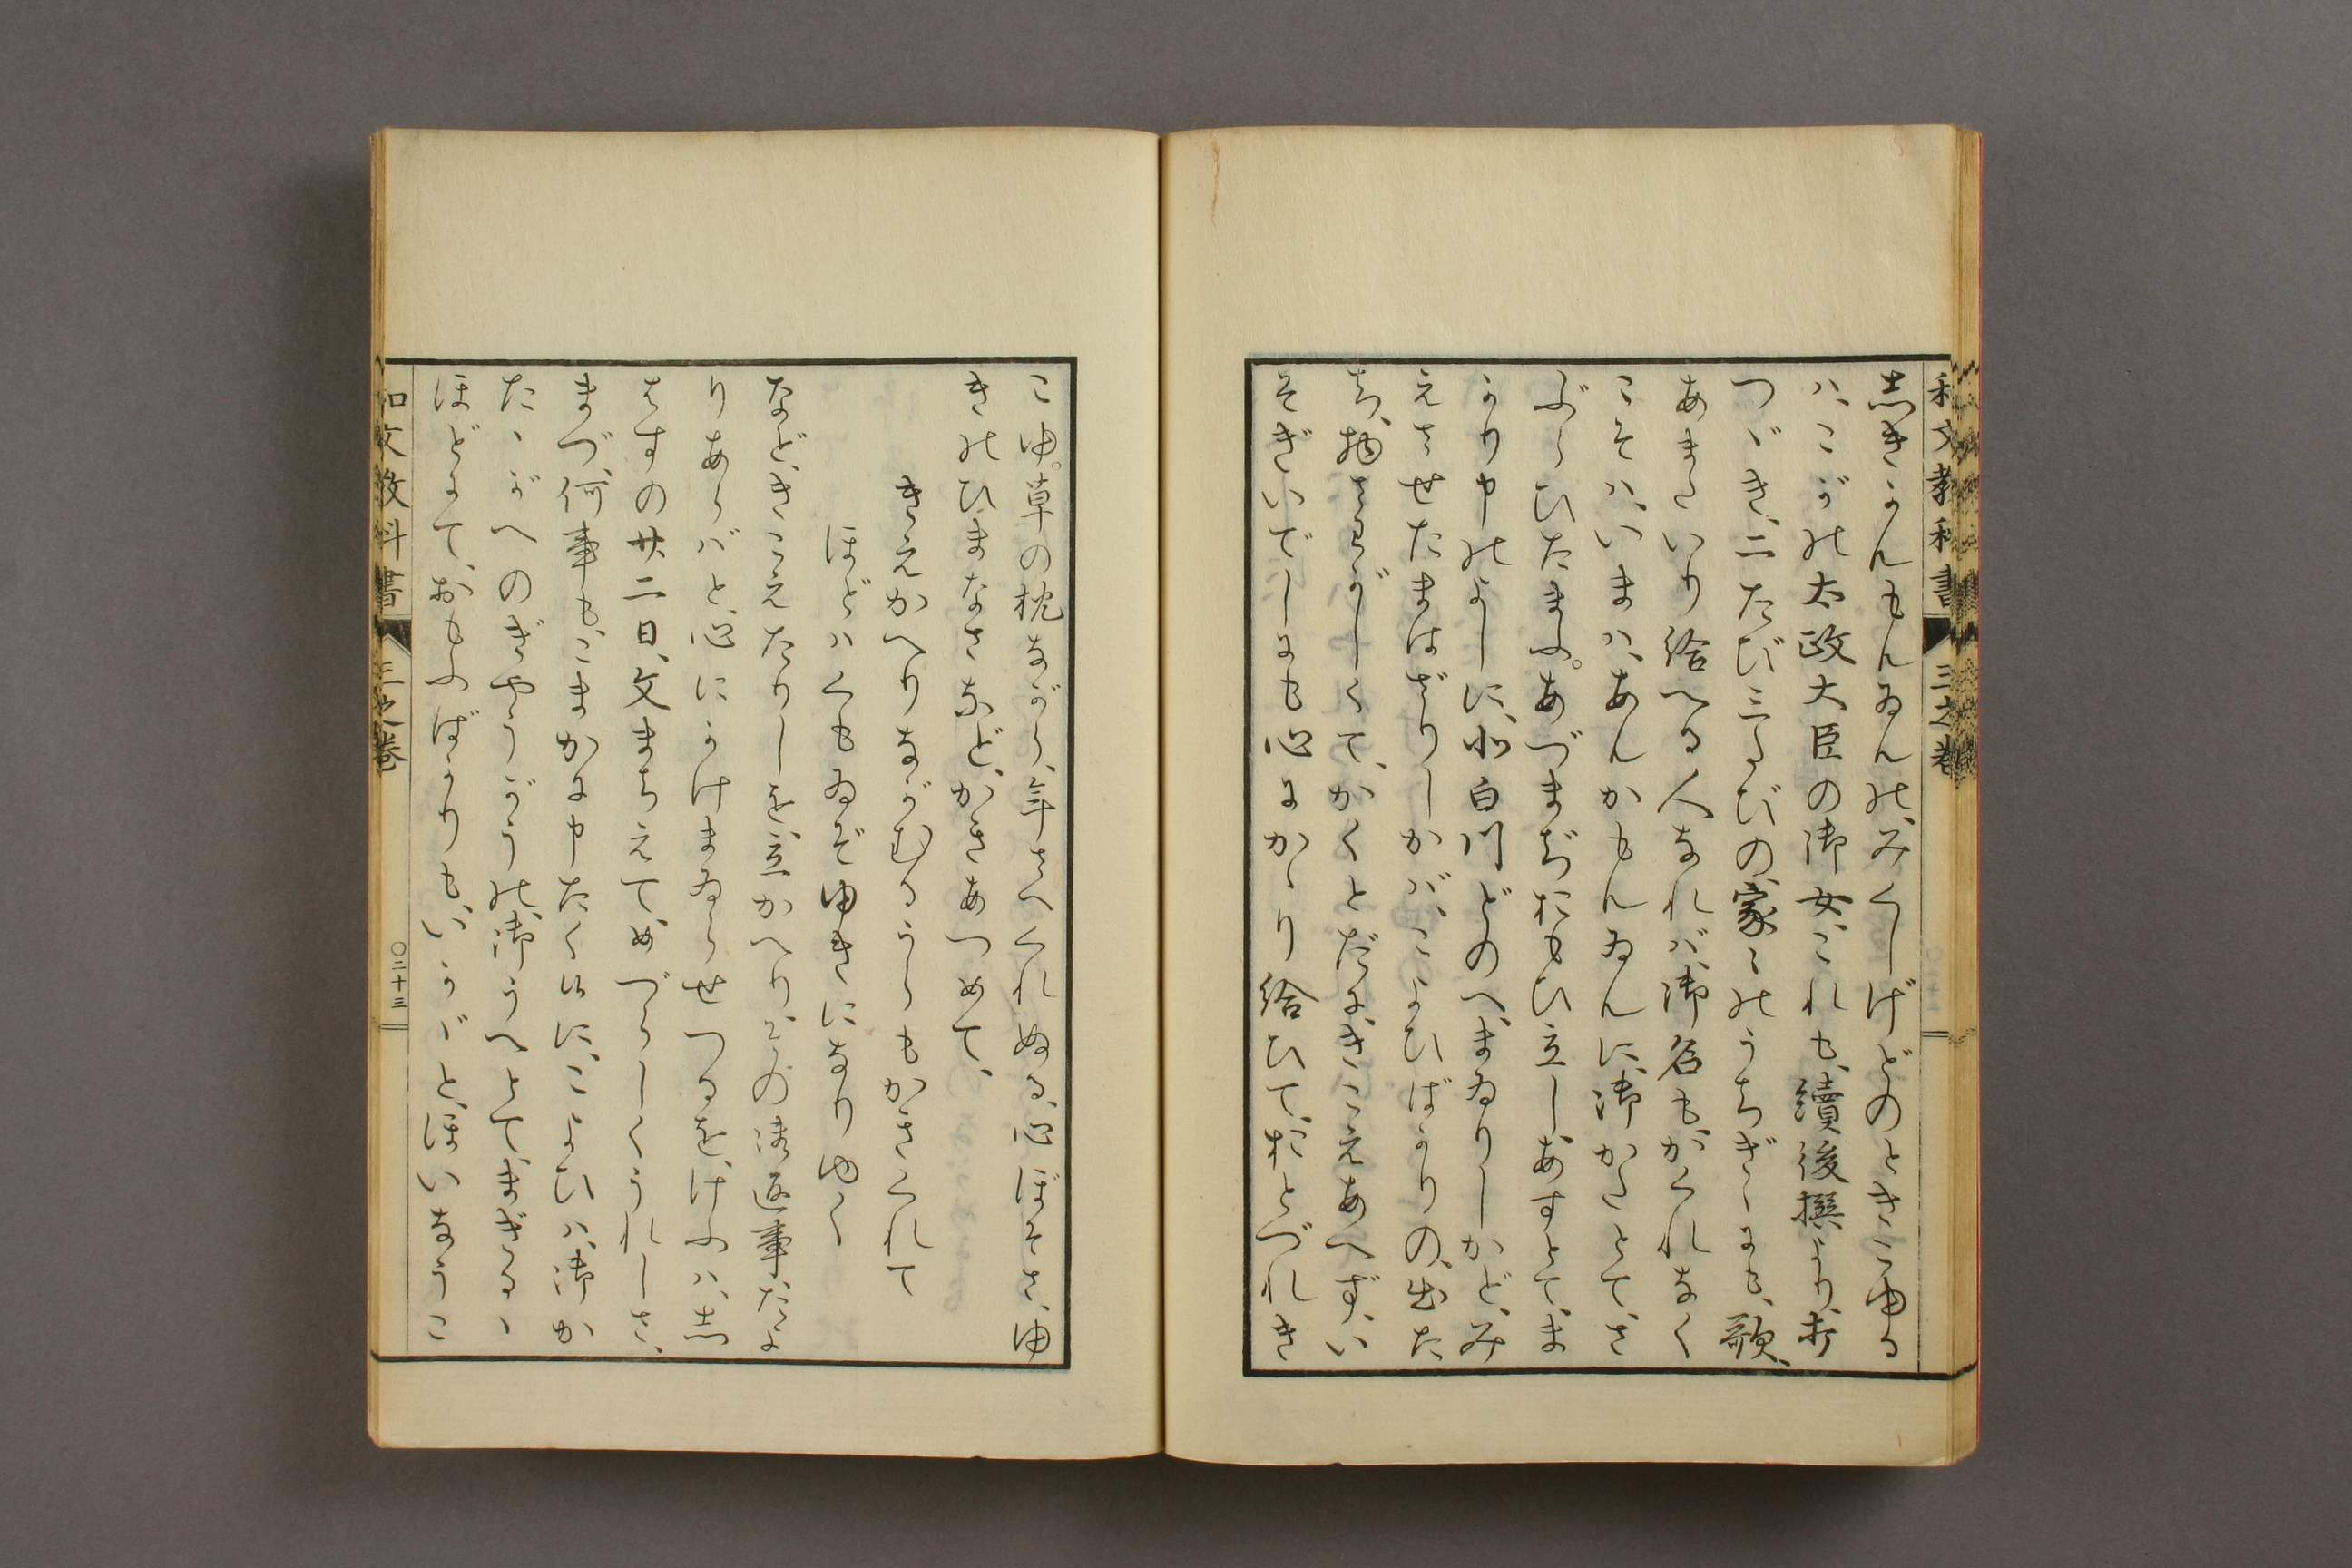 和文教科書 三之巻
志きかんもんゐんの、みくしげどのときこゆる
ハ、こがの太政大臣の御女、これも、續後撰より、打
つゞき、二たび三たびの、家々のうちぎゝにも、歌、
あまたいり給へる人なれバ、御名も、がくれなく
こそハ、いまハ、あんかもんゐんに、御かたとて、さ
ぶらひたまふ。あづまぢおもひ立し、あすとて、ま
かり申のよしに、北白川どのへ、まゐりしかど、み
えさせたまはざりしかバ、こよひばかりの、出た
ち、物さわがしくて、かくとだに、きこえあへず、い
そぎいでしにも、心にかゝり給ひて、おとづれき
こゆ。草の枕ながら、年さへくれぬる、心ぼそさ、ゆ
きのひまなさなど、かきあつめて、
きえかへりながむるそらもかきくれて
ほどハくもゐぞゆきになりゆく
など、きこえたりしを、立かへり、その御返事、たよ
りあらバと、心にかけまゐらせつるを、けふハ、志
はすの廿二日、文まちえて、めづらしくうれしさ、
まづ、何事も、こまかに申たく候に、こよひハ、御か
たゝがへのぎやうがうの、御うへとて、まぎるゝ
ほどにて、おもふばかりも、いかゞと、ほいなうこ
和文教科書 三之巻 〇二十三